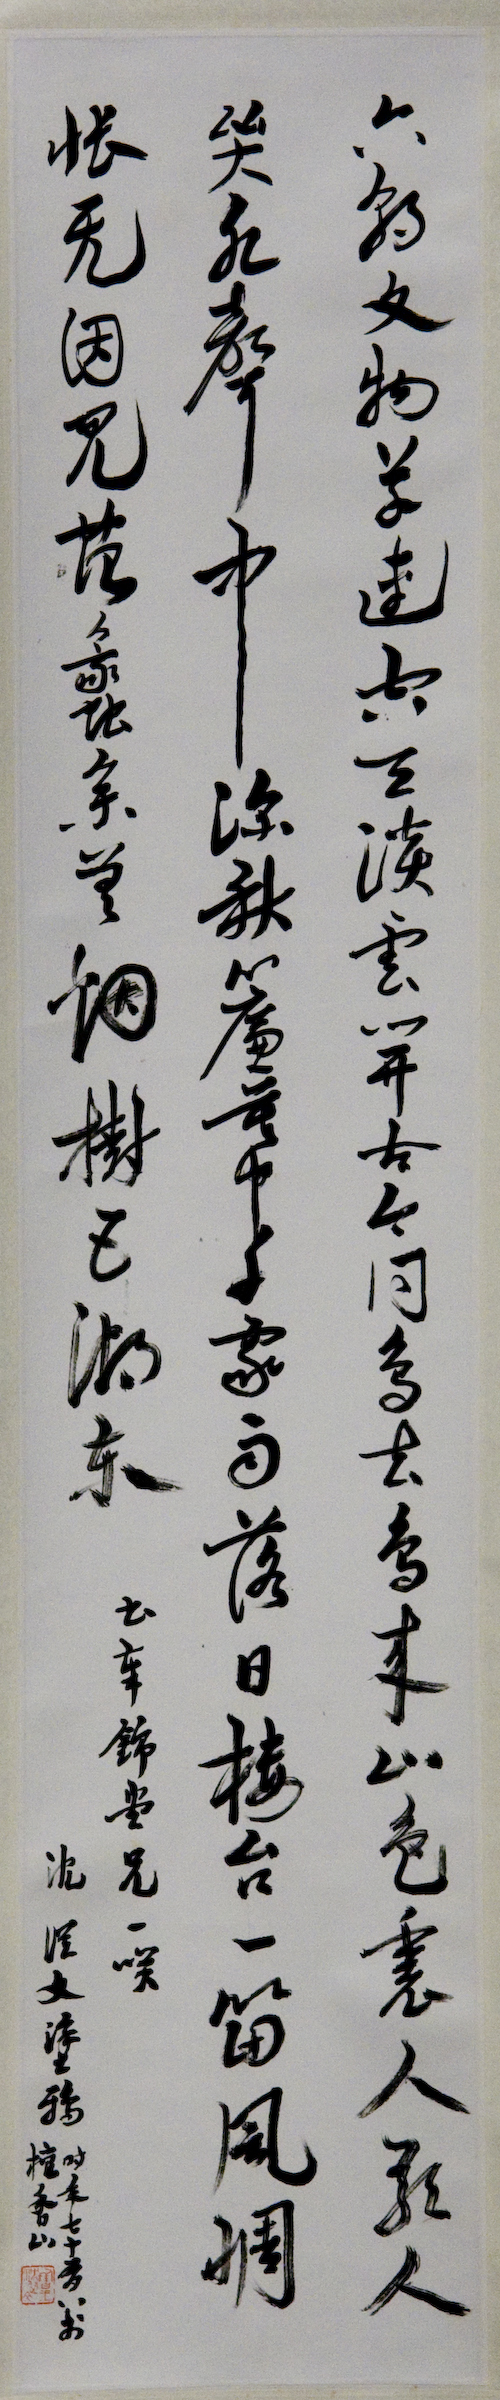 六朝文物草連空天淡雲開古今同鳥去鳥來山色裏人歌人
哭水聲中深秋簾幕千家雨落日樓台一笛風惆
悵无因見范蠡參差烟樹五湖东
书奉錦堂兄一咲
沈從文塗鴉
时年七十
檀香山